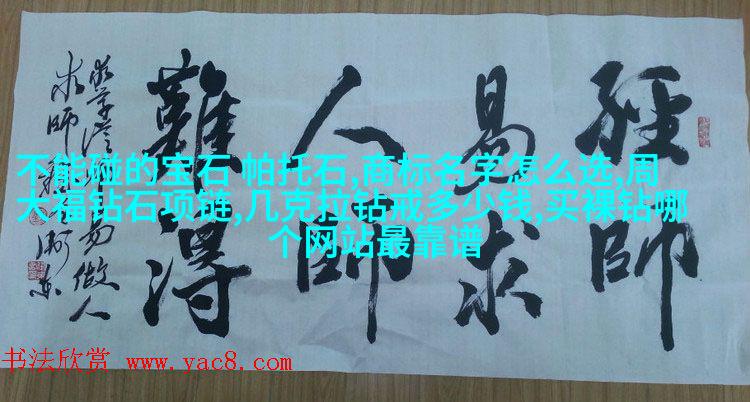 經師
易求
人師
難得
不能碰的宝石 帕托石,商标名字怎么选,周
大福钻石项链,几克拉钻戒多少钱,买裸钻哪
个网站最靠谱
书法欣赏 www.yac8.com